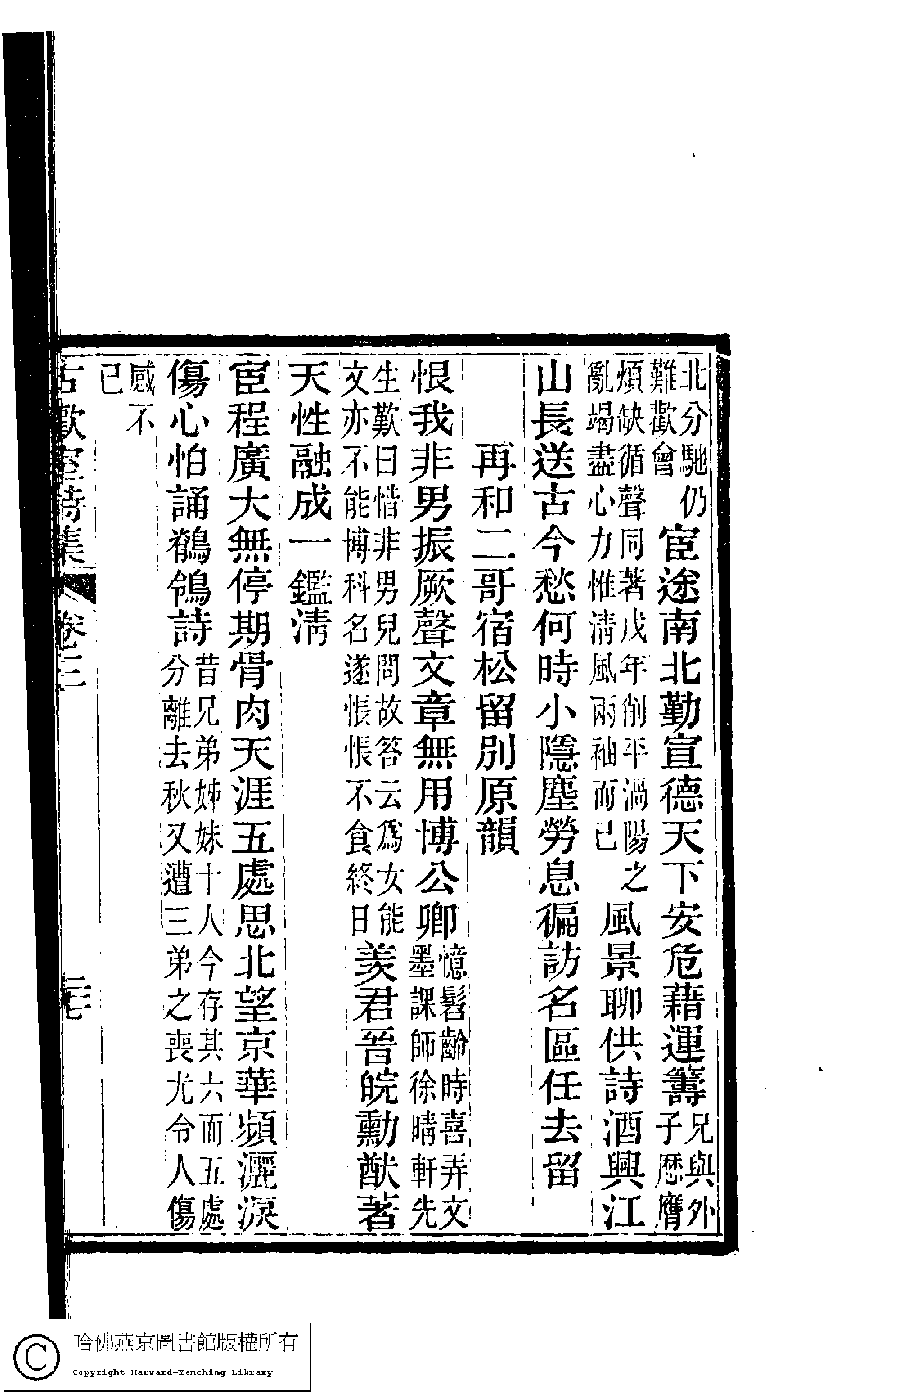 北分馳仍
難歡會
宦途南北勤宣德天下安危藉運籌
兄與外
子歷膺
煩缺循聲同著戊年削平渦陽之
亂竭盡心力惟清風兩袖而已
風景聊供詩酒興江
山長送古今愁何時小隱塵勞息徧訪名區任去留
再和二哥宿松留別原韻
恨我非男振厥聲文章無用博公卿
憶髫齡時喜弄文
墨課師徐晴軒先
生歎曰惜非男兒問故答云爲女能
文亦不能博科名遂悵悵不食終日
羨君晉皖勳猷著
天性融成一鑑淸
宦程廣大無停期骨肉天涯五處思北望京華頻灑淚
傷心怕誦鶺鴒詩
昔兄弟姊妹十人今存其六而五處
分離去秋又遭三弟之喪尤令人傷
感不
已
古歡室詩集 卷三
哈佛燕京圖書館版權所有
Copyright Harvard-Yenching Library